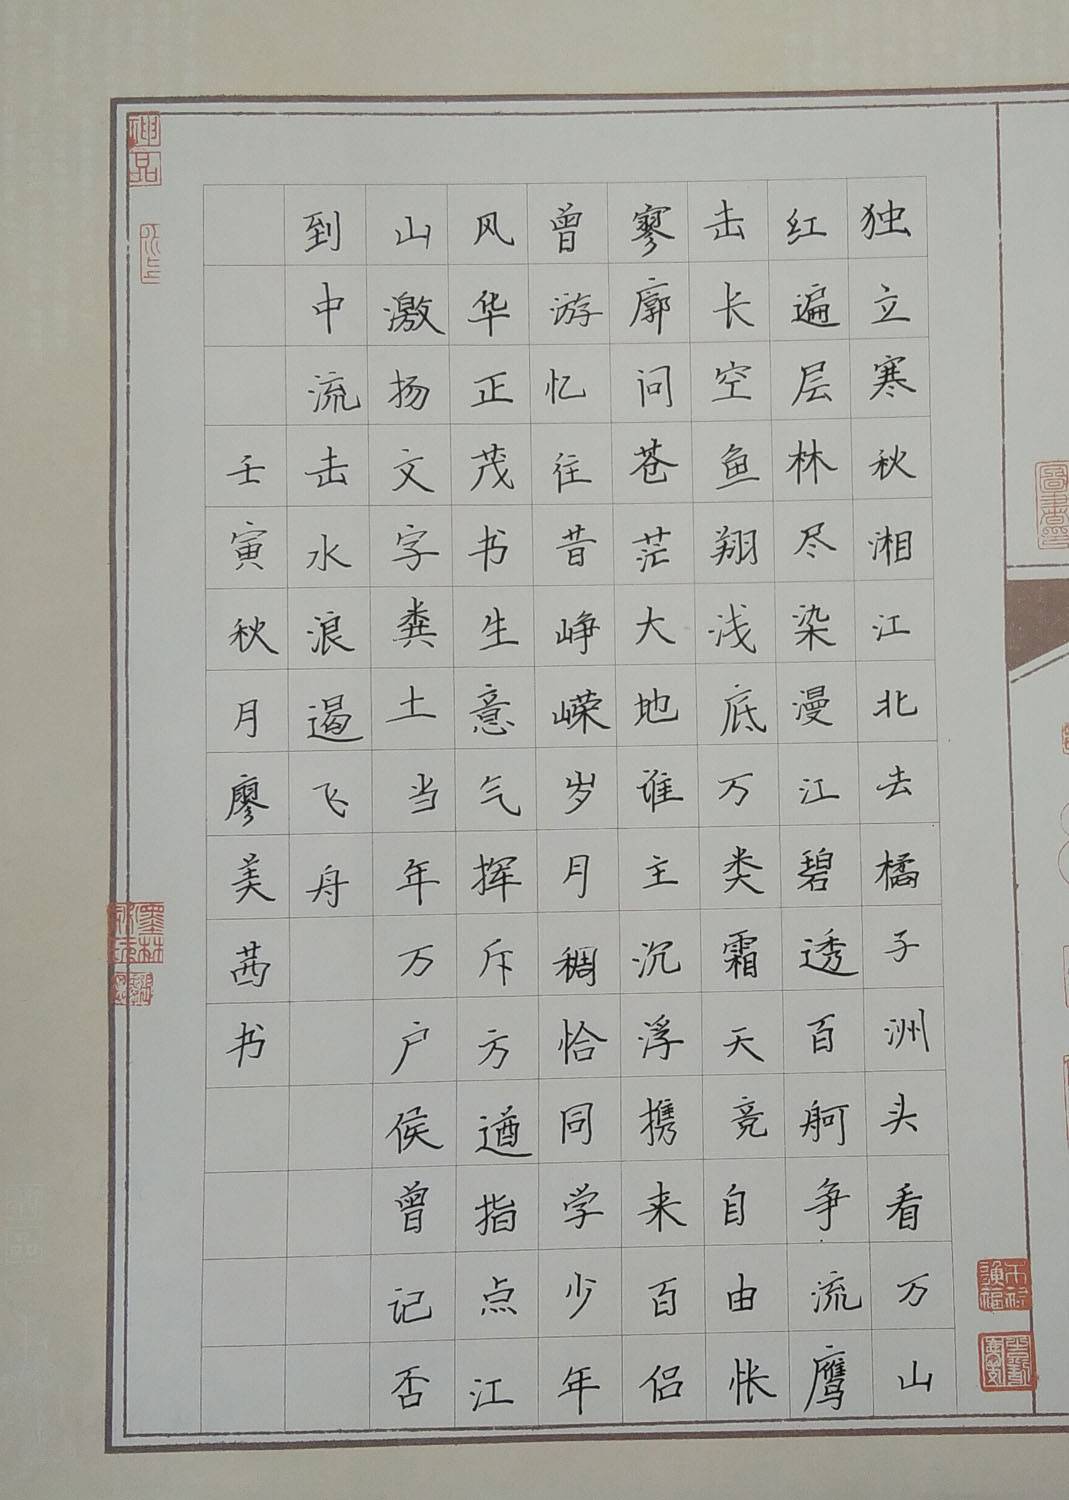 独立寒秋湘江北去橘子洲头看万山
红遍层林尽染漫江碧透百舸争流鹰
击长空鱼翔浅底万类霜天竞自由怅
寥廓问苍茫大地谁主沉浮携来百侣
曾游忆往昔峥嵘岁月稠恰同学少年
风华正茂书生意气挥斥方遒指点江
山激扬文字粪土当年万户侯曾记否
到中流击水浪遏飞舟
壬寅秋月廖美茜书